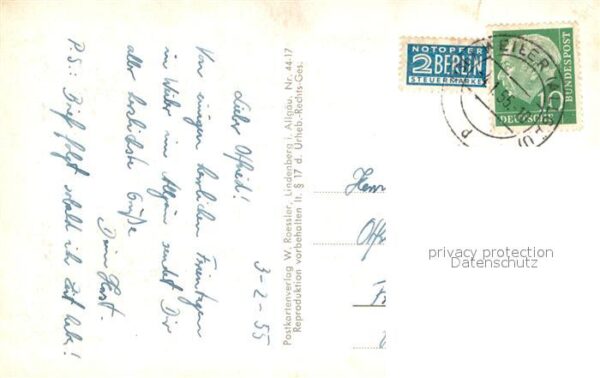 3-2-55
Lieber Otfried!
Von einigen herrlichen Ferientagen
in Weiler im Allgäu sendet Dir
aller herzlichste Grüße
Dein Horst.
P.S.: Brief folgt sobald ich Zeit habe!
Postkartenverlag W. Roessler, Lindenberg i. Allgäu. Nr. 44-17
Reproduktion vorbehalten lt. § 17 d. Urheb.-Rechts-Ges.
NOTOPFER
2 BERLIN
STEUERMARKE
DEUTSCHE
BUNDESPOST
10
Herrn
privacy protection
Datenschutz